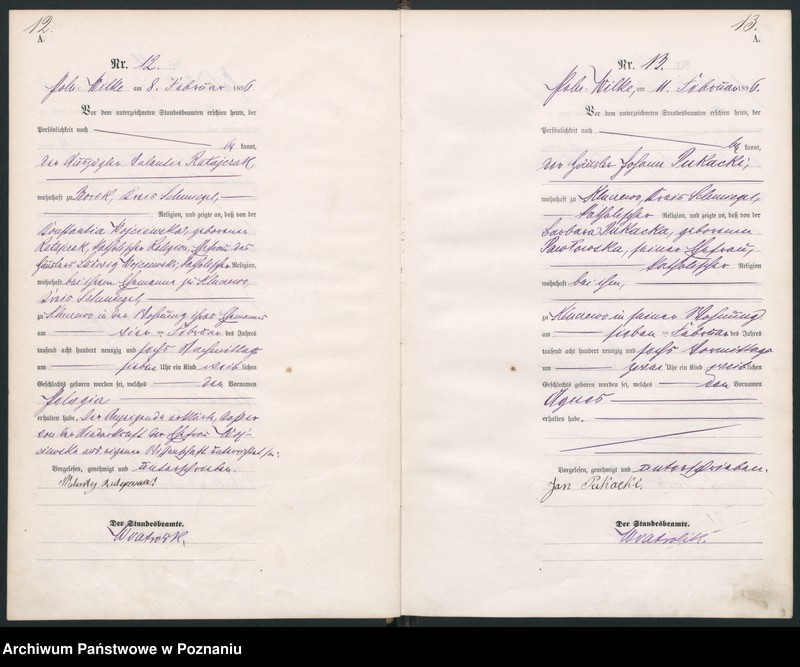 12.
A.
Nr. 12.
Poln. Wilke am 8. Februar 1896.
Vor dem unterzeichneten Standesbeamten erschien heute, der
Persönlichkeit nach
kannt,
der Auszügler Valentin Ratajczak,
wohnhaft zu Borek, Kreis Schmiegel,
Religion, und zeigte an, daß von der
Konstantia Wojciewska, geborenen
Ratajczak, katholischer Religion, Ehefrau des
Häuslers Ludwig Wojciewski, katholischer Religion,
wohnhaft bei ihrem Ehemanne zu
Kreis Schmiegel,
zu in der Wohnung ihres Ehemannes
am vier Februar des Jahres
tausend acht hundert neunzig und sechs Nachmittags
um sieben Uhr ein Kind weiblichen
Geschlechts geboren worden sei, welches den Vornamen
Pelagia
erhalten habe. Der Anzeigende erklärt, daß er
von der Niederkunft der Ehefrau Woj-
ciewska aus eigener Wissenschaft unterrichtet sei.
Vorgelesen, genehmigt und unterschrieben.
Der Standesbeamte.
13.
A.
Nr. 13.
Poln. Wilke, am 11. Februar 1896.
Vor dem unterzeichneten Standesbeamten erschien heute, der
Persönlichkeit nach
kannt,
der Häusler Johann Pukacki,
wohnhaft zu Kreis Schmiegel,
katholischer Religion, und zeigte an, daß von der
Barbara Pukacka, geborenen
Pawłowska, seiner Ehefrau,
katholischer Religion
wohnhaft bei ihm,
zu in seiner Wohnung
am sieben Februar des Jahres
tausend acht hundert neunzig und sechs Vormittags
um Uhr ein Kind weiblichen
Geschlechts geboren worden sei, welches den Vornamen
Agnes
erhalten habe.
Vorgelesen, genehmigt und unterschrieben.
Jan Pukacki.
Der Standesbeamte.
Archiwum Państwowe w Poznaniu